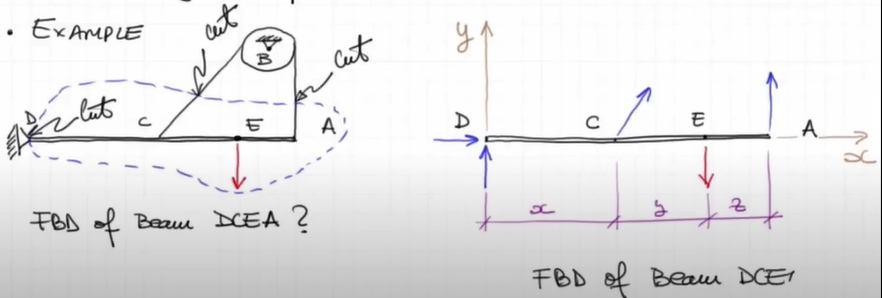 • EXAMPLE
cut
B
cut
D
cut
C
E
A
FBD of Beam DCEA ?
y
D
C
E
A
x
x
y
z
FBD of Beam DCE